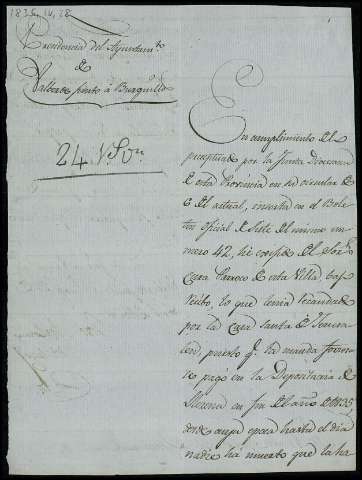 Presidencia del Ayuntam.to
de
Valverde junto à Burguillos
24 V.on
En cumplimiento del
preceptuado por la Junta Diocesana
de esta Provincia en su circular de
6 del actual, inserta en el Bole-
tin oficial de este del mismo nu-
mero 42, he corrido el Sor.
Cura Parroco de esta Villa, bajo
recibo, lo que tenia recaudado
por la Casa Santa de Jerusa-
len, puesto q.e la manda forzosa
se pagó en la Depositaria de
Llerena en fin del año de 1835
desde cuya epoca hasta el dia
nadie ha muerto que la ha